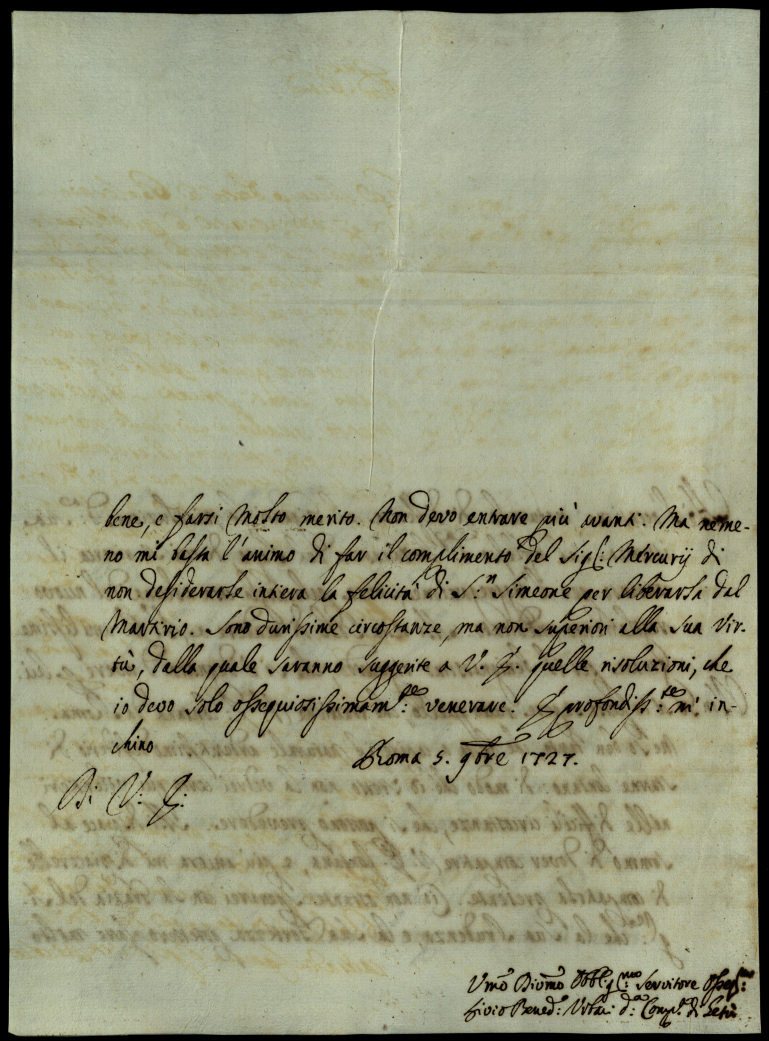 bene, e farsi molto merito. Non devo entrare più avanti. Ma neme-
no mi basta l'animo di far il complimento del Sig.r Mercurij di
non desiderarle intiera la felicità di S.n Simeone per liberarla dal
Martirio. Sono durissime circostanze, ma non superiori alla sua vir-
tù, dalla quale saranno suggerite a V. E. quelle risoluzioni, che
io devo solo ossequiosissimam.te venerare. E profondiss.te m'in-
chino
Roma 5. 9bre 1727.
Di V: E:
Vmo Divmo Obblig.mo Servitore Osseq.mo
Livio Bened.o d.a Comp.a di Gesù